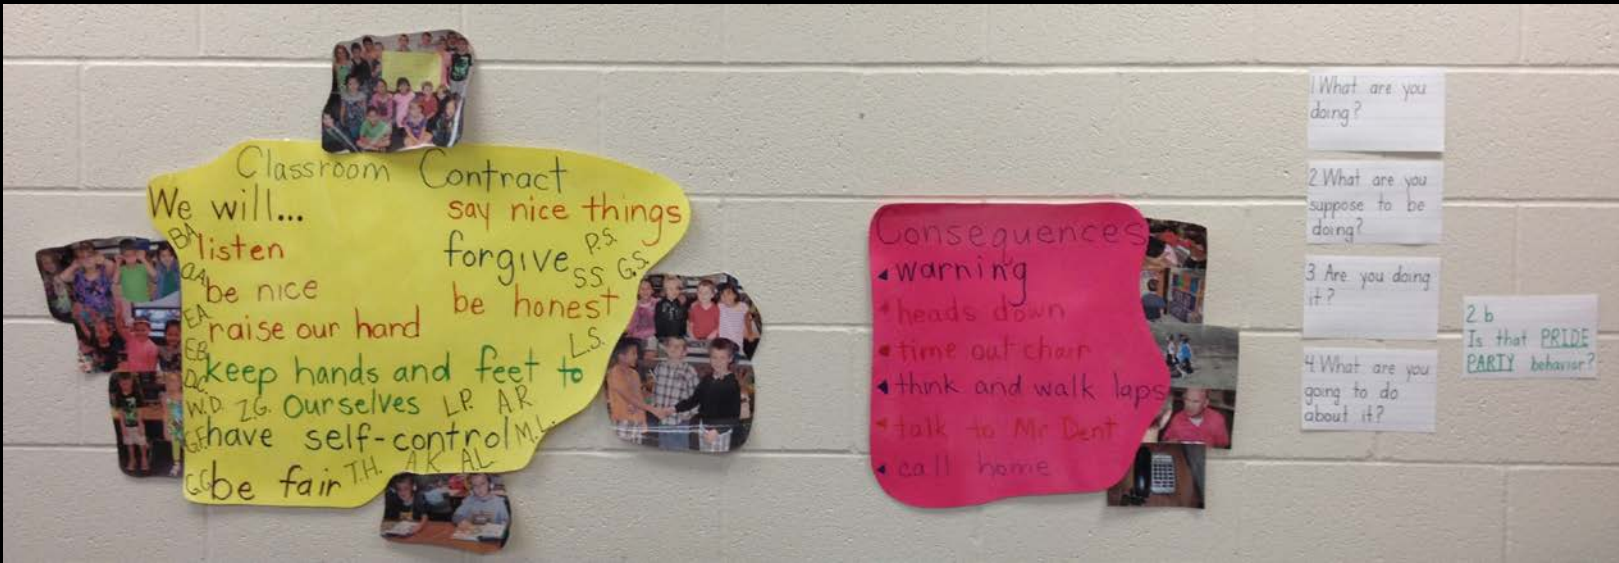 Classroom Contract
We will...
listen
be nice
raise our hand
keep hands and feet to
ourselves
have self-control
be fair
say nice things
forgive
be honest
BA
EA
EB
DC
W.D.
Z.G.
G.G.
T.H.
A.R.
A.L.
M.L.
L.P.
A.R
L.S.
S.S.
G.S.
P.S.
Consequences
warning
heads down
time out chair
think and walk laps
talk to Mr Dent
call home
1 What are you
doing?
2 What are you
suppose to be
doing?
3 Are you doing
it?
4 What are you
going to do
about it?
2.b
Is that PRIDE
PARTY behavior?